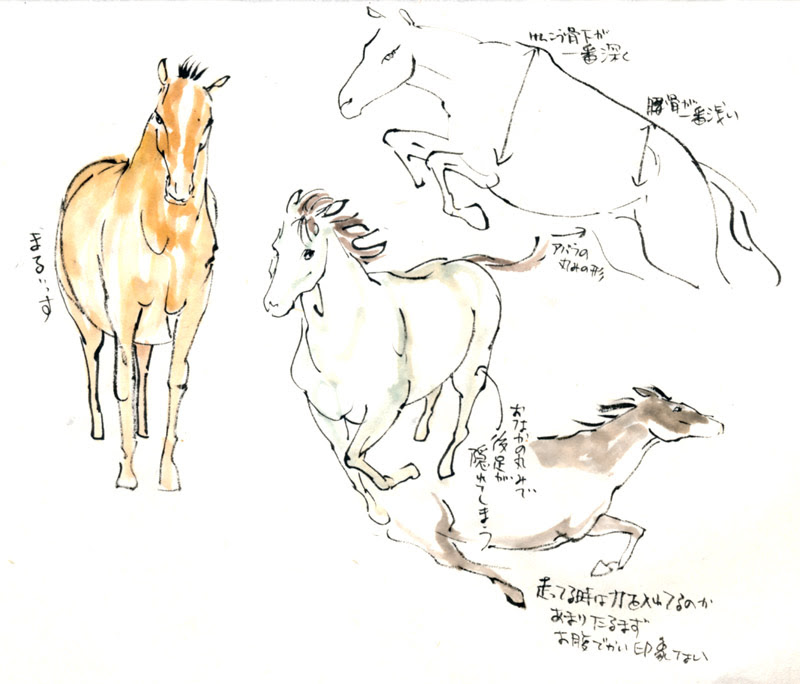 けんこう骨下が
一番深く
腰骨が
一番浅い
アバラの
丸みの形
まるいっす
おなかの丸みで
後足が
隠れてしまう
走ってる時は力を入れてるのか
あまりたるまず
お腹でかい印象ない